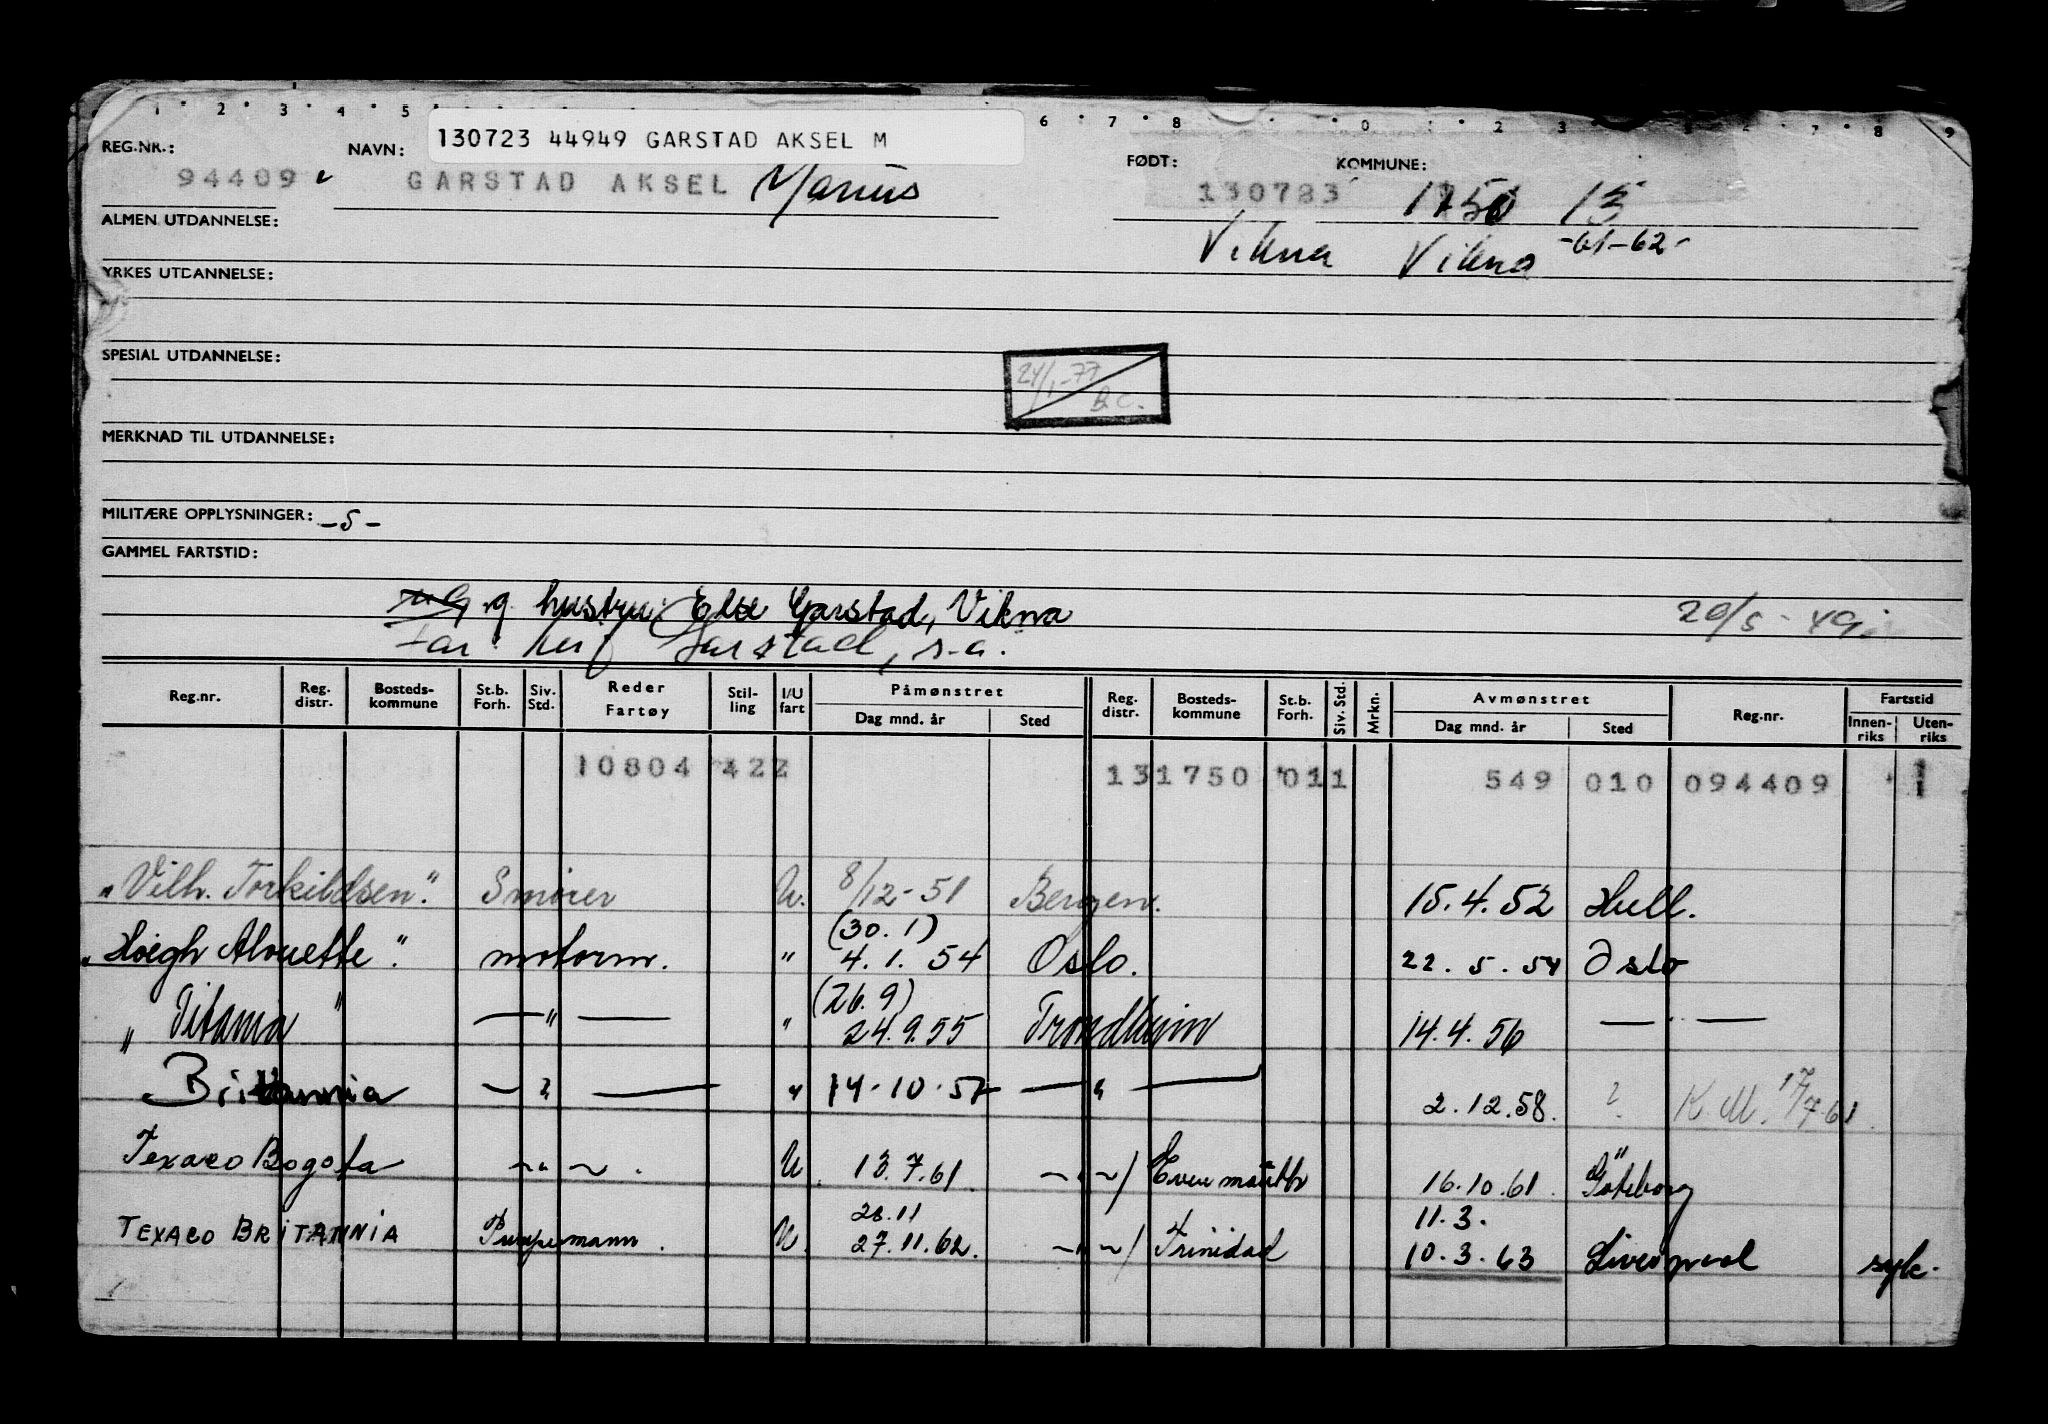 1 2 3 4 5 6 7 8 0 1 2 3 5 6 7 8 9
130723 44949 GARSTAD AKSEL M
REG.NR.: NAVN: FØDT: KOMMUNE:
94409 GARSTAD AKSEL Marius 130783 1750 13
ALMEN UTDANNELSE: Vikna Vikna -61-62-
YRKES UTDANNELSE:
SPESIAL UTDANNELSE:
24/1-77
B.C.
MERKNAD TIL UTDANNELSE:
MILITÆRE OPPLYSNINGER: -5-
GAMMEL FARTSTID:
g. hustru: Else Garstad, Vikna 20/5-49
far: Garstad, s.a.
Reg.nr. Reg. distr. Bosteds-kommune St.b. Forh. Siv. Std. Reder Fartøy Stil-ling I/U fart Påmønstret Dag mnd. år Sted Reg. distr. Bosteds-kommune St.b. Forh. Siv. Std. Mrkn. Avmønstret Dag mnd. år Sted Reg.nr. Fartstid Innen-riks Uten-riks
10804 422 131750 011 549 010 094409 1
"Vilh. Torkildsen". Smører U. 8/12-51 Bergen. 15.4.52 Hull.
(30.1)
"Höegh Alouette". motorm. " 4.1.54 Oslo. 22.5.54 Oslo
(26.9)
"Titania" — " — " 24.9.55 Trondheim 14.4.56 — —
Britannia — " — " 14-10-57 — " — 2.12.58. ? K.M. 17/7-61
Texaco Bogota ~ " ~ . U. 13.7.61 — " ~) 16.10.61. Göteborg
28.11 11.3.
TEXACO BRITANNIA Pumpemann. U. 27.11.62. — " ~) Trinidad 10.3.63 Liverpool syk.